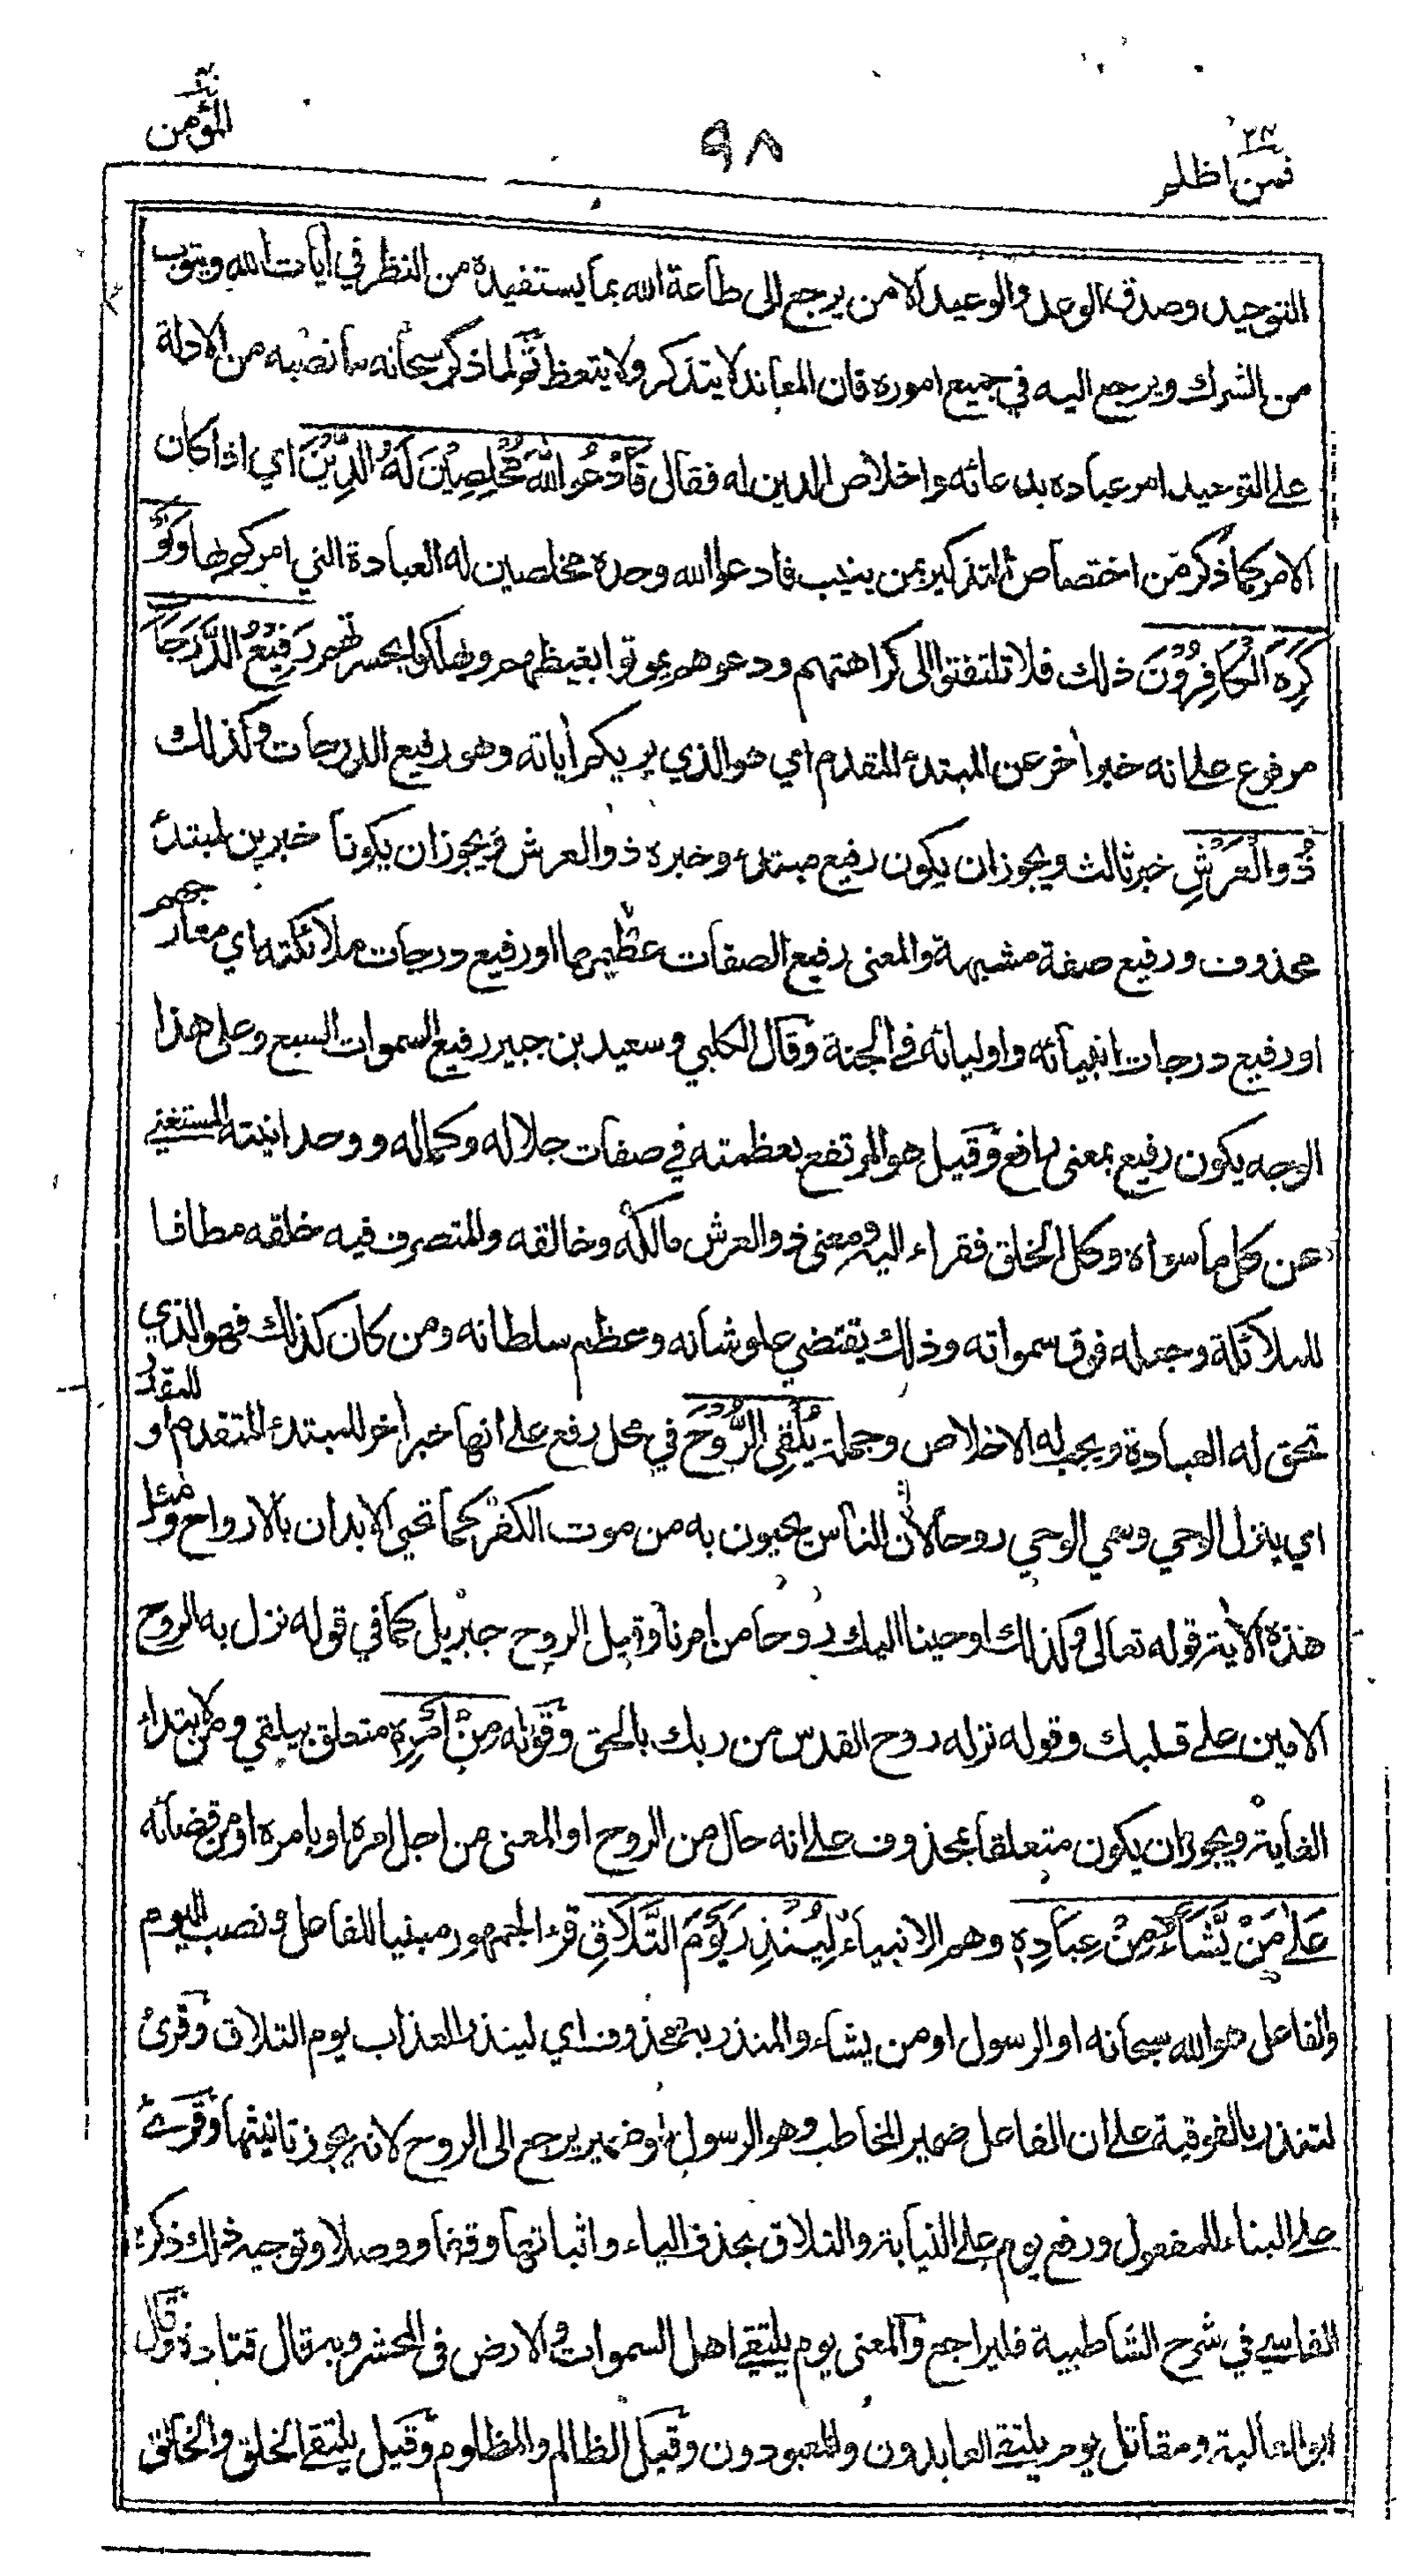 فمن اظلم ٢٤
٩٨
المؤمن ٤٠
التوحيد وصدق الوعد والوعيد الا من يرجع الى طاعة الله بما يستفيده من النظر في أيات الله ويتوب
من الشرك ويرجع اليه في جميع اموره فان المعاند لا يتذكر ولا يتعظ ثم لما ذكر سبحانه ما نصبه من الادلة
على التوحيد امر عباده بدعائه واخلاص الدين له فقال فَادْعُوا اللّٰهَ مُخْلِصِيْنَ لَهُ الدِّيْنَ اي اذا كان
الامر كما ذكر من اختصاص التذكير بمن ينيب فادعوا الله وحده مخلصين له العبادة التي امركم بها وَلَوْ
كَرِهَ الْكَافِرُوْنَ ذلك فلا تلتفتوا الى كراهتهم ودعوهم يموتوا بغيظهم ويهلكوا بحسرتهم رَفِيْعُ الدَّرَجَاتِ
مرفوع على انه خبر أخر عن المبتدئ المتقدم اي هو الذي يريكم أياته وهو رفيع الدرجات وكذلك
ذُو الْعَرْشِ خبر ثالث ويجوز ان يكون رفيع مبتدء وخبره ذو العرش ويجوز ان يكونا خبرين لمبتدئ
محذوف ورفيع صفة مشبهة والمعنى رفيع الصفات عظيمها او رفيع درجات ملائكته اي معارجهم
او رفيع درجات انبيائه واوليائه في الجنة وقال الكلبي وسعيد بن جبير رفيع السموات السبع وعلى هذا
الوجه يكون رفيع بمعنى رافع وقيل هو المرتفع بعظمته في صفات جلاله وكماله ووحدانيته المستغني
عن كل ما سواه وكل الخلق فقراء اليه ومعنى ذو العرش مالكه وخالقه والمتصرف فيه خلقه مطافا
للملائكة وجعله فوق سمواته وذلك يقتضي علو شانه وعظم سلطانه ومن كان كذلك فهو الذي
تحق له العبادة ويجب له الاخلاص وجملة يُلْقِى الرُّوْحَ في محل رفع على انها خبر أخر للمبتدء المتقدم او للمقدر
اي ينزل الوحي وسمي الوحي روحا لان الناس يحيون به من موت الكفر كما تحيى الابدان بالارواح ومثل
هذه الأية قوله تعالى وكذلك اوحينا اليك روحا من امرنا وقيل الروح جبريل كما في قوله نزل به الروح
الامين على قلبك وقوله نزله روح القدس من ربك بالحق وقوله مِنْ اَمْرِهٖ متعلق بيلقي ومن لابتداء
الغاية ويجوز ان يكون متعلقا بمحذوف على انه حال من الروح او المعنى من اجل امره او بامره او من قضائه
عَلٰى مَنْ يَّشَاءُ مِنْ عِبَادِهٖ وهم الانبياء لِيُنْذِرَ يَوْمَ التَّلَاقِ قرء الجمهور مبنيا للفاعل ونصب اليوم
والفاعل هو الله سبحانه او الرسول او من يشاء والمنذر به محذوف اي لينذر العذاب يوم التلاق وقرئ
لتنذر بالفوقية على ان الفاعل ضمير المخاطب وهو الرسول او ضمير يرجع الى الروح لانه يجوز تانيثها وقرئ
على البناء للمفعول ورفع يوم على النيابة والتلاق بحذف الياء واثباتها وقفا ووصلا وتوجيه ذلك ذكره
الفاسي في شرح الشاطبية فليراجع والمعنى يوم يلتقي اهل السموات والارض في المحشر وبه قال قتادة وقال
ابو العالية ومقاتل يوم يلتقي العابدون والمعبودون وقيل الظالم والمظلوم وقيل يلتقي الخلق والخالق